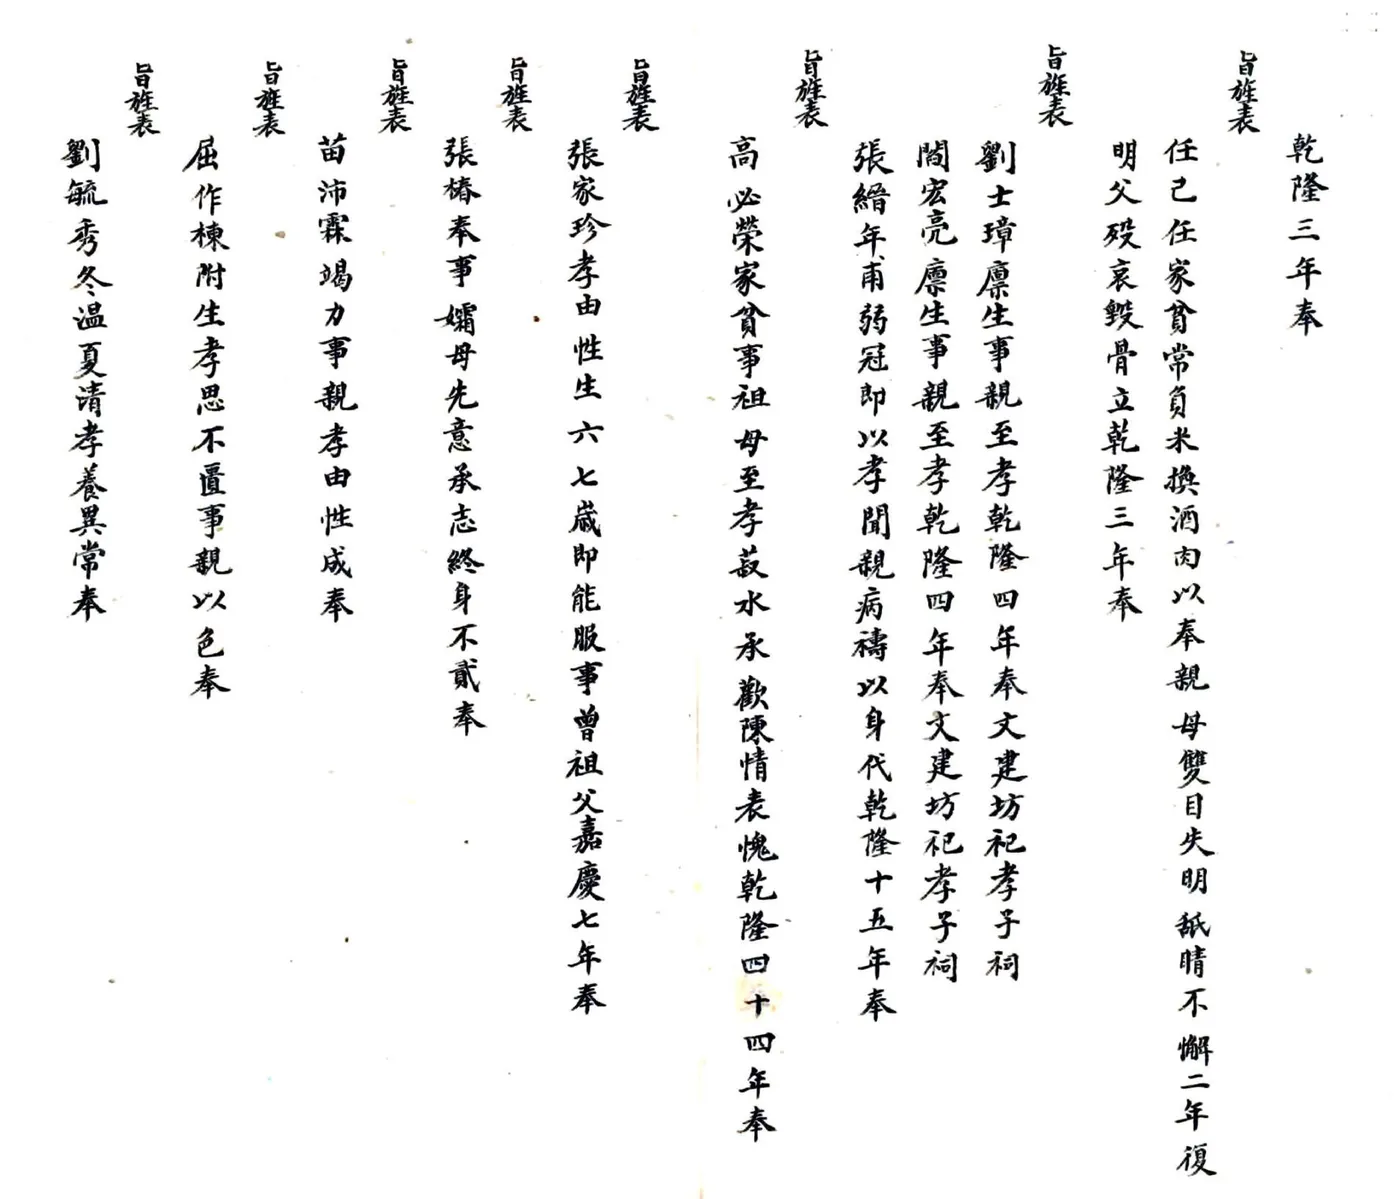 乾隆三年奉
旨旌表
任己任家貧常負米換酒肉以奉親母雙目失明舐睛不懈二年復
明父歿哀毀骨立乾隆三年奉
旨旌表
劉士璋廪生事親至孝乾隆四年奉文建坊祀孝子祠
閻宏亮廪生事親至孝乾隆四年奉文建坊祀孝子祠
張縉年甫弱冠即以孝聞親病禱以身代乾隆十五年奉
旨旌表
高必榮家貧事祖母至孝菽水承歡陳情表愧乾隆四十四年奉
旨旌表
張家珍孝由性生六七歲即能服事曾祖父嘉慶七年奉
旨旌表
張椿奉事孀母先意承志終身不貳奉
旨旌表
苗沛霖竭力事親孝由性成奉
旨旌表
屈作棟附生孝思不匱事親以色奉
旨旌表
劉毓秀冬温夏清孝養異常奉